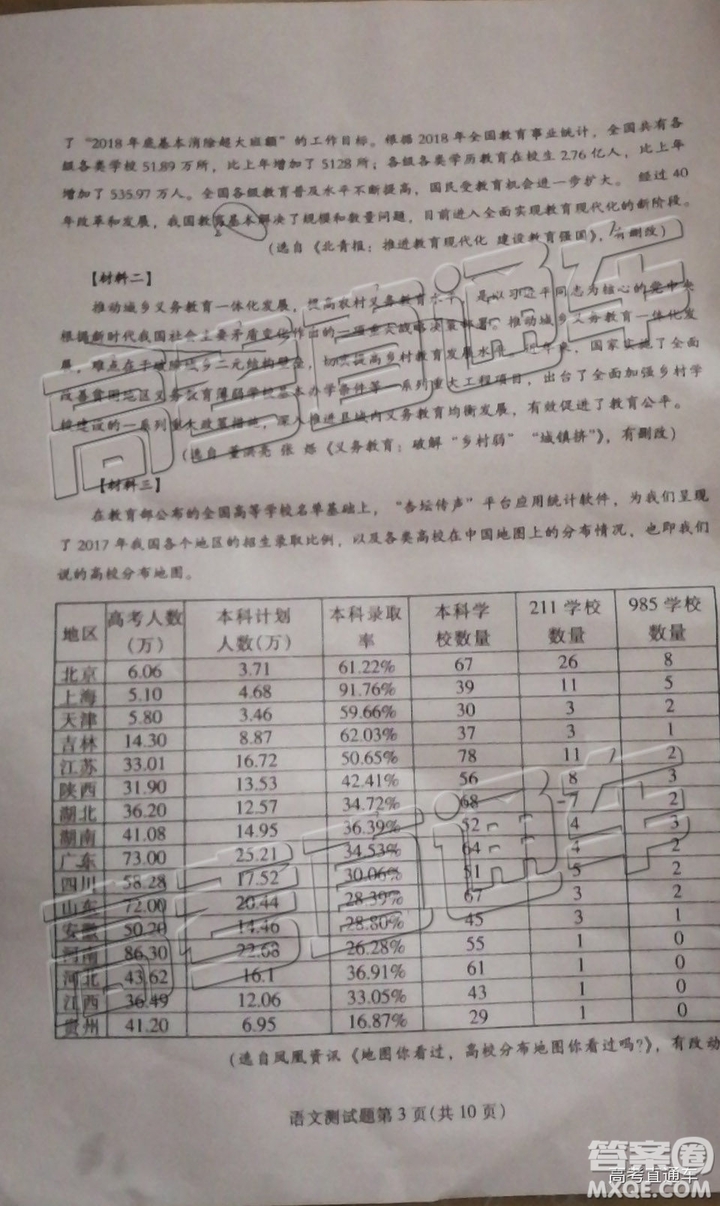 了“2018年底基本消除超大班额”的工作目标。根据2018年全国教育事业统计，全国共有各
级各类学校51.89万所，比上年增加了5128所；各级各类学历教育在校生2.76亿人，比上年
增加了535.97万人。全国各级教育普及水平不断提高，国民受教育机会进一步扩大。 经过40
年改革和发展，我国教育基本解决了规模和数量问题，目前进入全面实现教育现代化的新阶段。
（选自《北青报：推进教育现代化 建设教育强国》，有删改）
【材料二】
推动城乡义务教育一体化发展，提高农村义务教育水平，是以习近平同志为核心的党中央
根据新时代我国社会主要矛盾变化作出的一项重大战略决策部署。推动城乡义务教育一体化发
展，难点在于破除城乡二元结构壁垒，切实提高乡村教育发展水平。近年来，国家实施了全面
改善贫困地区义务教育薄弱学校基本办学条件等一系列重大工程项目，出台了全面加强乡村学
校建设的一系列重大政策措施，深入推进县域内义务教育均衡发展，有效促进了教育公平。
（选自 董洪亮 张 烁《义务教育：破解“乡村弱” “城镇挤”》，有删改）
【材料三】
在教育部公布的全国高等学校名单基础上，“杏坛传声”平台应用统计软件，为我们呈现
了2017年我国各个地区的招生录取比例，以及各类高校在中国地图上的分布情况，也即我们
说的高校分布地图。
地区 高考人数（万） 本科计划人数（万） 本科录取率 本科学校数量 211学校数量 985学校数量
北京 6.06 3.71 61.22% 67 26 8
上海 5.10 4.68 91.76% 39 11 5
天津 5.80 3.46 59.66% 30 3 2
吉林 14.30 8.87 62.03% 37 3 1
江苏 33.01 16.72 50.65% 78 11 2
陕西 31.90 13.53 42.41% 56 8 3
湖北 36.20 12.57 34.72% 68 7 2
湖南 41.08 14.95 36.39% 52 4 3
广东 73.00 25.21 34.53% 64 4 2
四川 58.28 17.52 30.06% 51 5 2
山东 72.00 20.44 28.39% 67 3 2
安徽 50.20 14.46 28.80% 45 3 1
河南 86.30 22.68 26.28% 55 1 0
河北 43.62 16.1 36.91% 61 1 0
江西 36.49 12.06 33.05% 43 1 0
贵州 41.20 6.95 16.87% 29 1 0
（选自凤凰资讯《地图你看过，高校分布地图你看过吗?》，有改动
语文测试题第3页(共10页)
高考直通车
高考直通车
答案圈
高考直通车
MXQE.COM